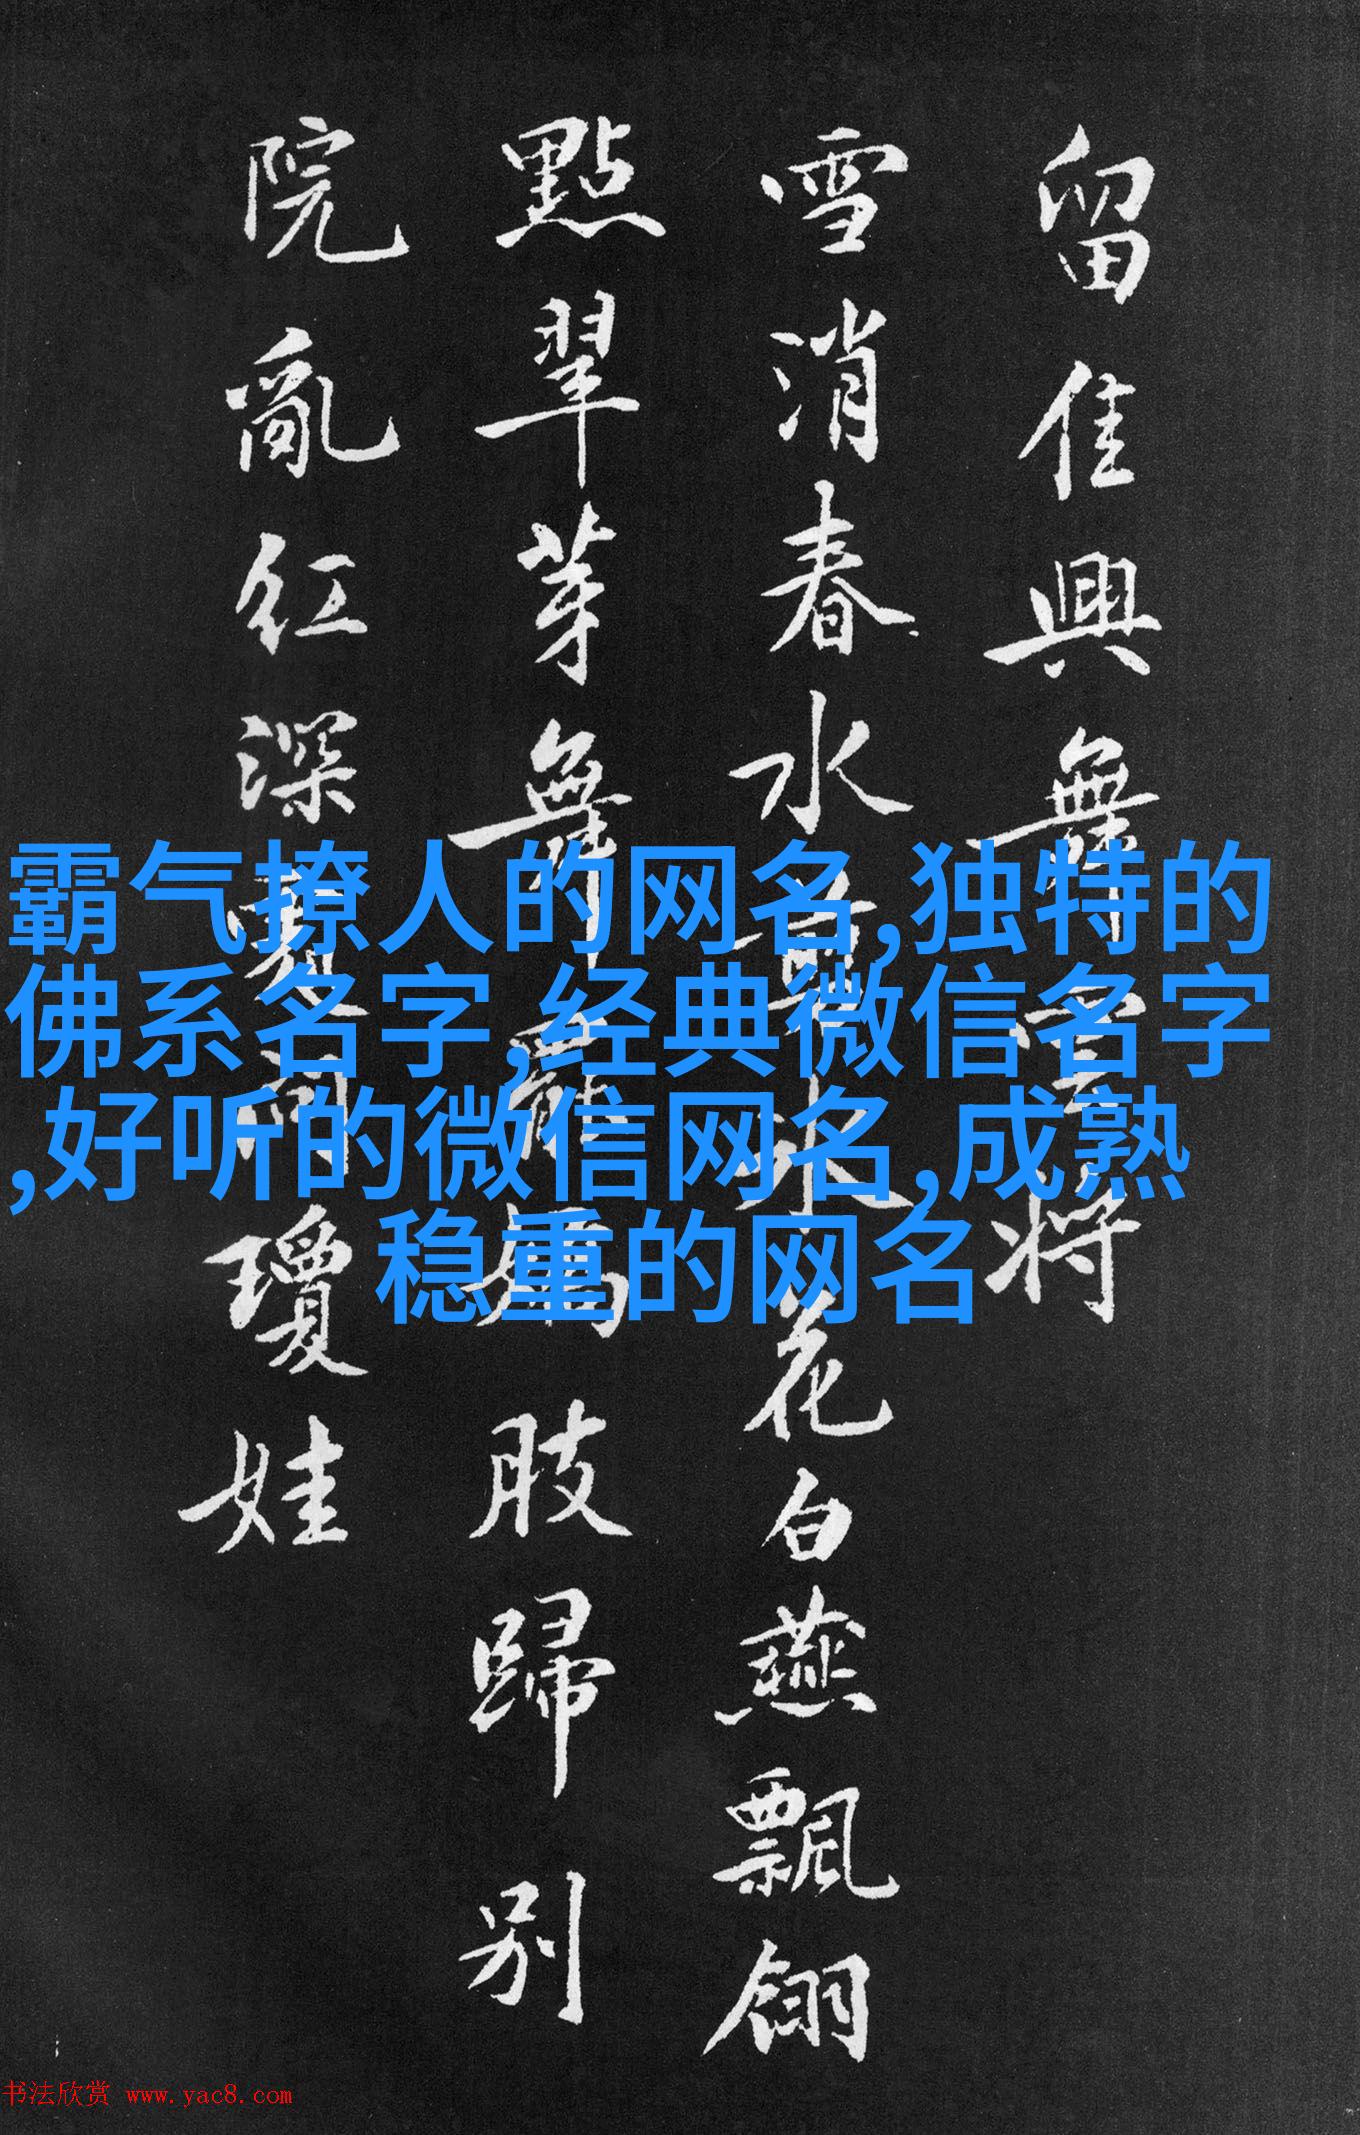 留佳興舞雪将
雪消春水 水花白燕飄翎
點翠芽舞 肢歸别
院亂紅深 瓊娃
霸气撩人的网名,独特的
佛系名字,经典微信名字
,好听的微信网名,成熟
稳重的网名
书法欣赏 www.yac8.com